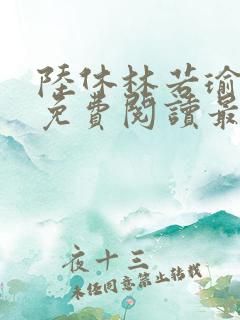 陸休林若瑜
免費閱讀最
夜十三
未经同意禁止转载